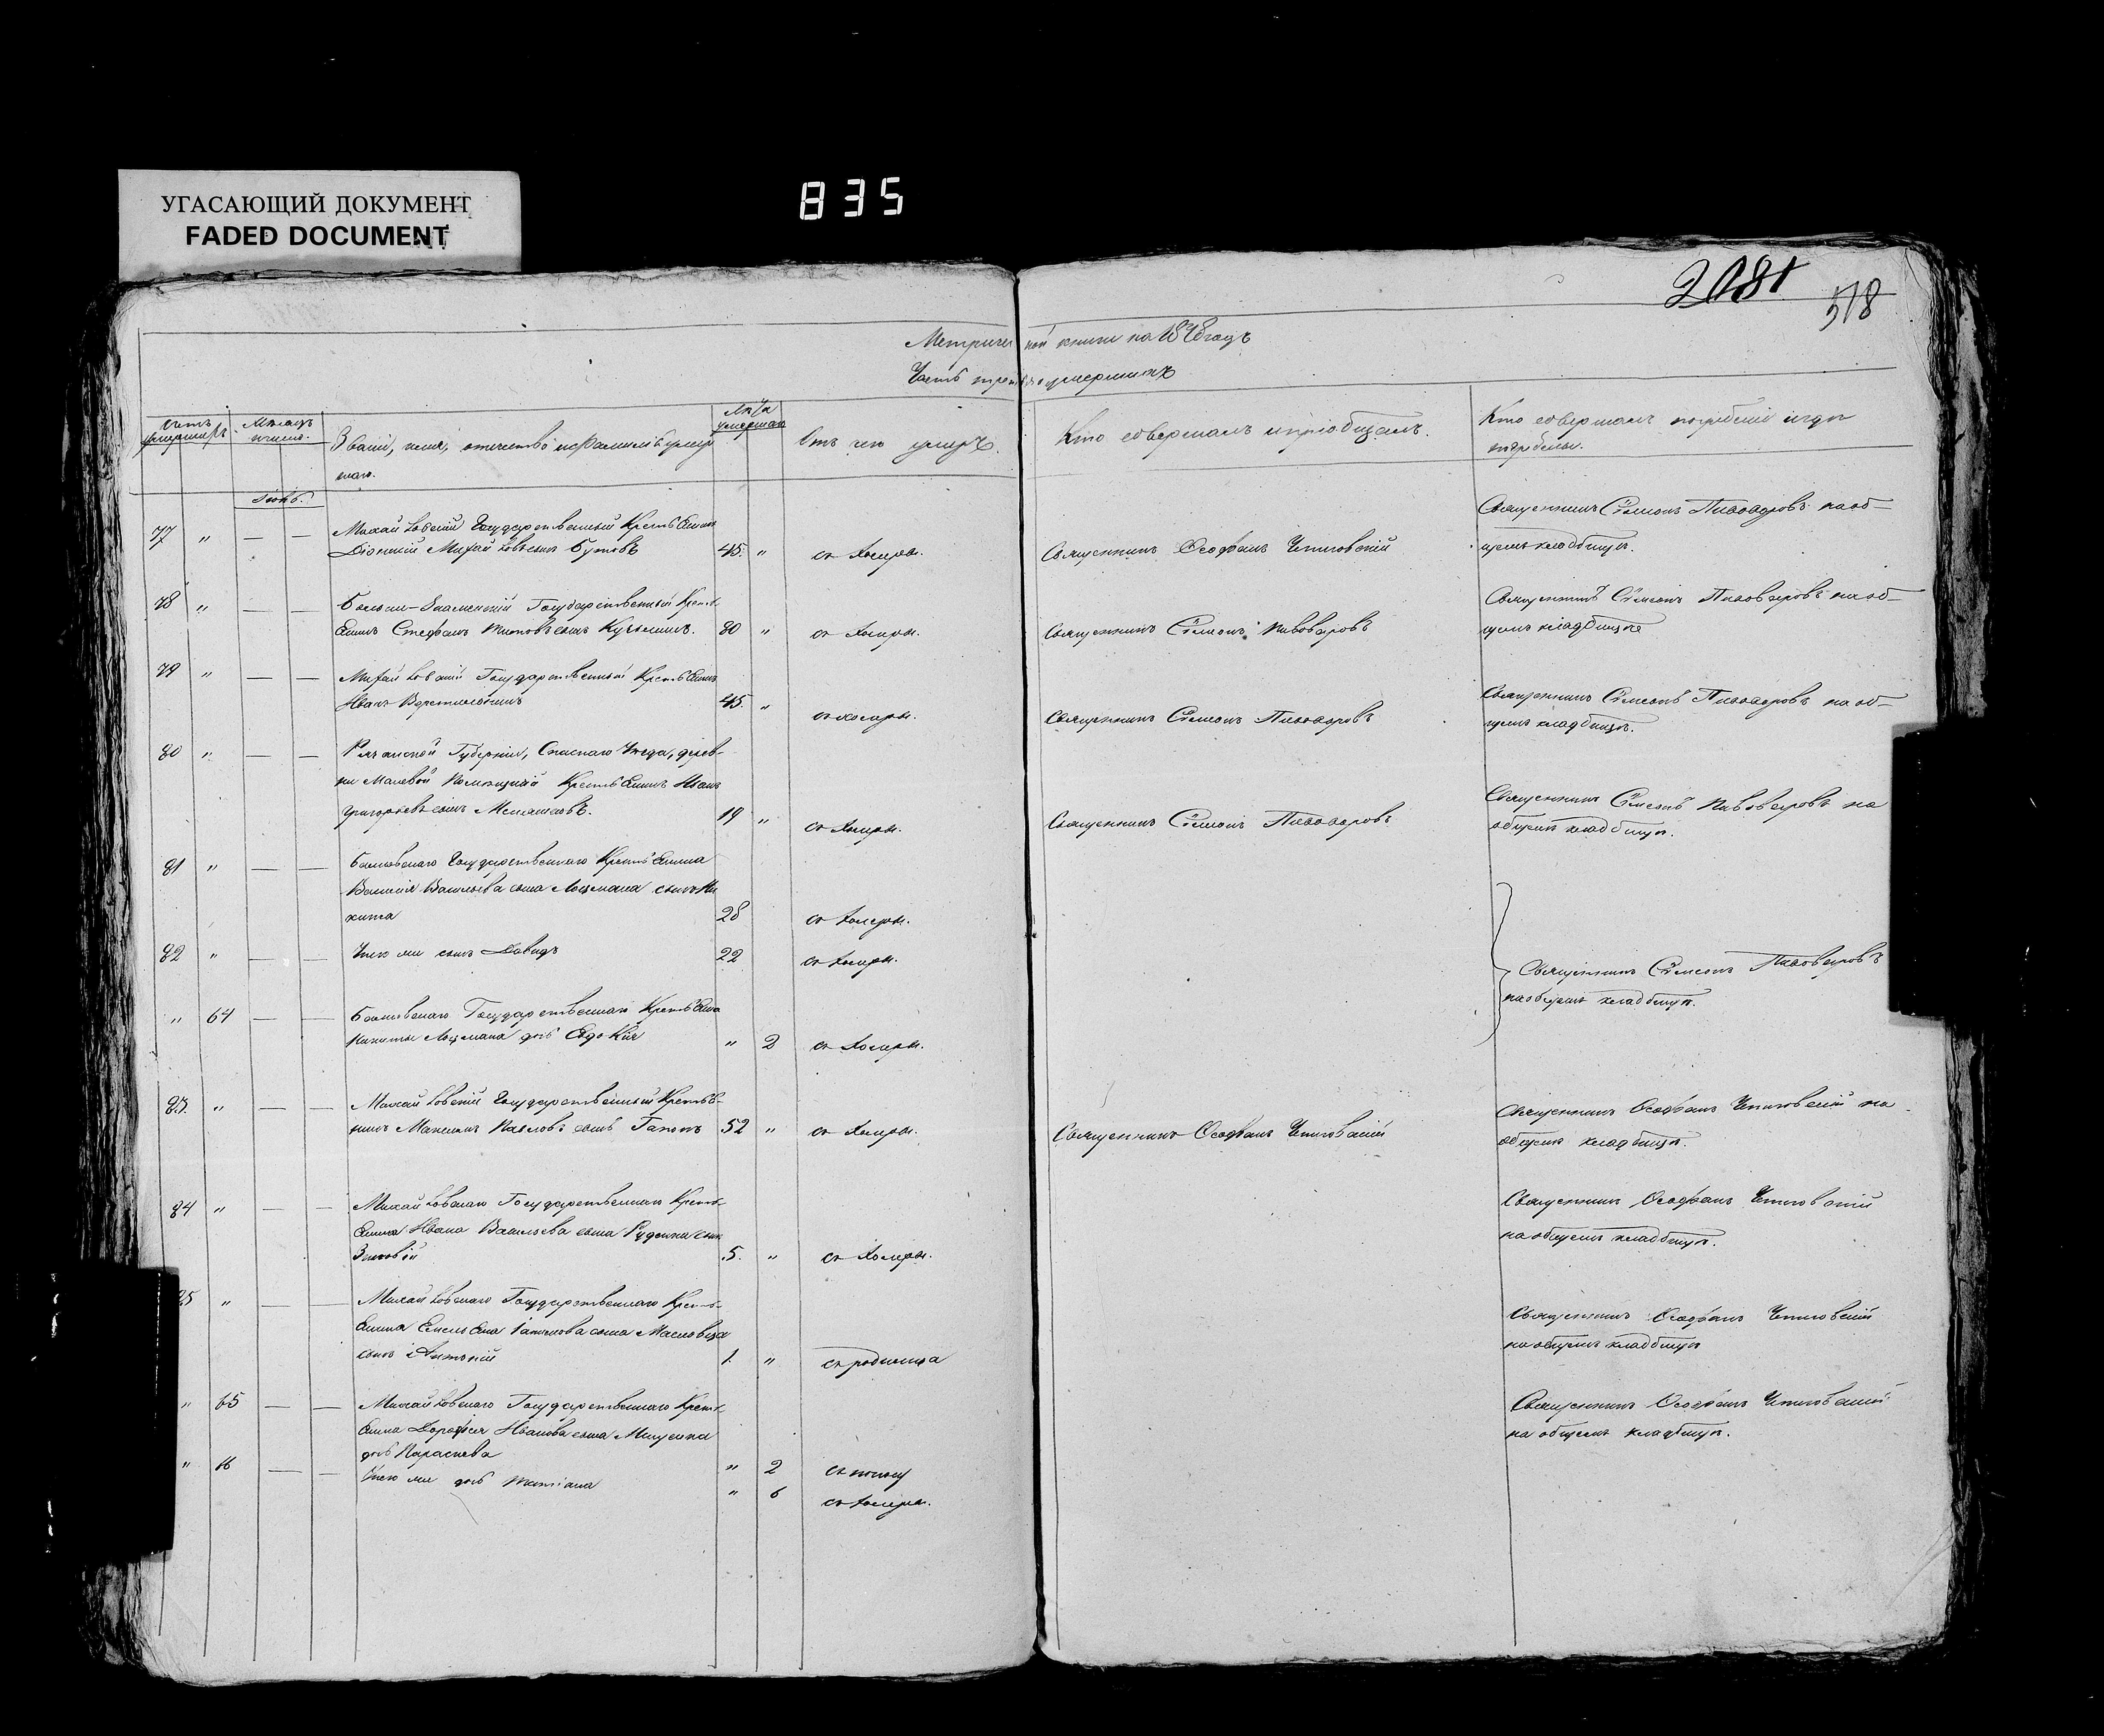 УГАСАЮЩИЙ ДОКУМЕНТ
FADED DOCUMENT
835
2081
518
Метрической книги на 1848 годъ
Часть третья о умершихъ
Счетъ умершихъ
Мѣсяцъ и число.
Званіе, имя, отчество и фамилія умер
шаго.
Лѣта умершаго
Отъ чего умеръ.
Кто совершалъ и пріобщалъ.
Кто совершалъ погребеніе и гдѣ
погребены.
Іюнь.
77 " — — Михайловскій Государственный Крестьянинъ
Діонисій Михайловъ сынъ Бутовъ 45. " съ Холеры. Священникъ Ѳеофанъ Чтиговскій
Священникъ Сѵмеонъ Пивоваровъ на об-
щемъ кладбищѣ.
78 " — — Больше-Знаменскій Государственный Кресть-
янинъ Стефанъ Титовъ сынъ 80 " съ Холеры. Священникъ Сѵмеонъ Пивоваровъ
Священникъ Сѵмеонъ Пивоваровъ на об-
щемъ кладбищѣ
79 " — — Михайловскій Государственный Крестьянинъ
Иванъ 45. " съ холеры. Священникъ Сѵмеонъ Пивоваровъ
Священникъ Сѵмеонъ Пивоваровъ на об-
щемъ кладбищѣ.
80 " — — Рязанской Губерніи, Спаскаго Уѣзда, дерев-
ни Малевой Помѣщичій Крестьянинъ Иванъ
Григорьевъ сынъ 19 " съ Холеры. Священникъ Сѵмеонъ Пивоваровъ
Священникъ Сѵмеонъ Пивоваровъ на
общемъ кладбищѣ.
81 " — — Государственнаго Крестьянина
Василія Васильева сына Лоцмана сынъ Ни
кита 28 съ Холеры.
82 " — — Его же сынъ Давидъ 22 съ Холеры.
Священникъ Сѵмеонъ Пивоваровъ
на общемъ кладбищѣ.
" 64 — — Государственнаго Крестьянина
Никиты Лоцмана дочь Евдокія " 2 съ Холеры.
83. " — — Михайловскій Государственный Крестья-
нинъ Максимъ Павловъ сынъ Гапонъ 52 " съ Холеры. Священникъ Ѳеофанъ Чтиговскій
Священникъ Ѳеофанъ Чтиговскій на
общемъ кладбищѣ.
84 " — — Михайловскаго Государственнаго Кресть-
янина Ивана Васильева сына Руденка сынъ
Зиновій 5. " съ Холеры.
Священникъ Ѳеофанъ Чтиговскій
на общемъ кладбищѣ.
85 " — — Михайловскаго Государственнаго Кресть-
янина Емельяна сына
сынъ 1. " съ родимца
Священникъ Ѳеофанъ Чтиговскій
на общемъ кладбищѣ
" 65 — — Михайловскаго Государственнаго Кресть-
янина Дорофея Иванова сына Мищенка
дочь Параскева " 2 съ поносу
Священникъ Ѳеофанъ Чтиговскій
на общемъ кладбищѣ.
" 66 — — Его же дочь Татіана " 6 съ Холеры.